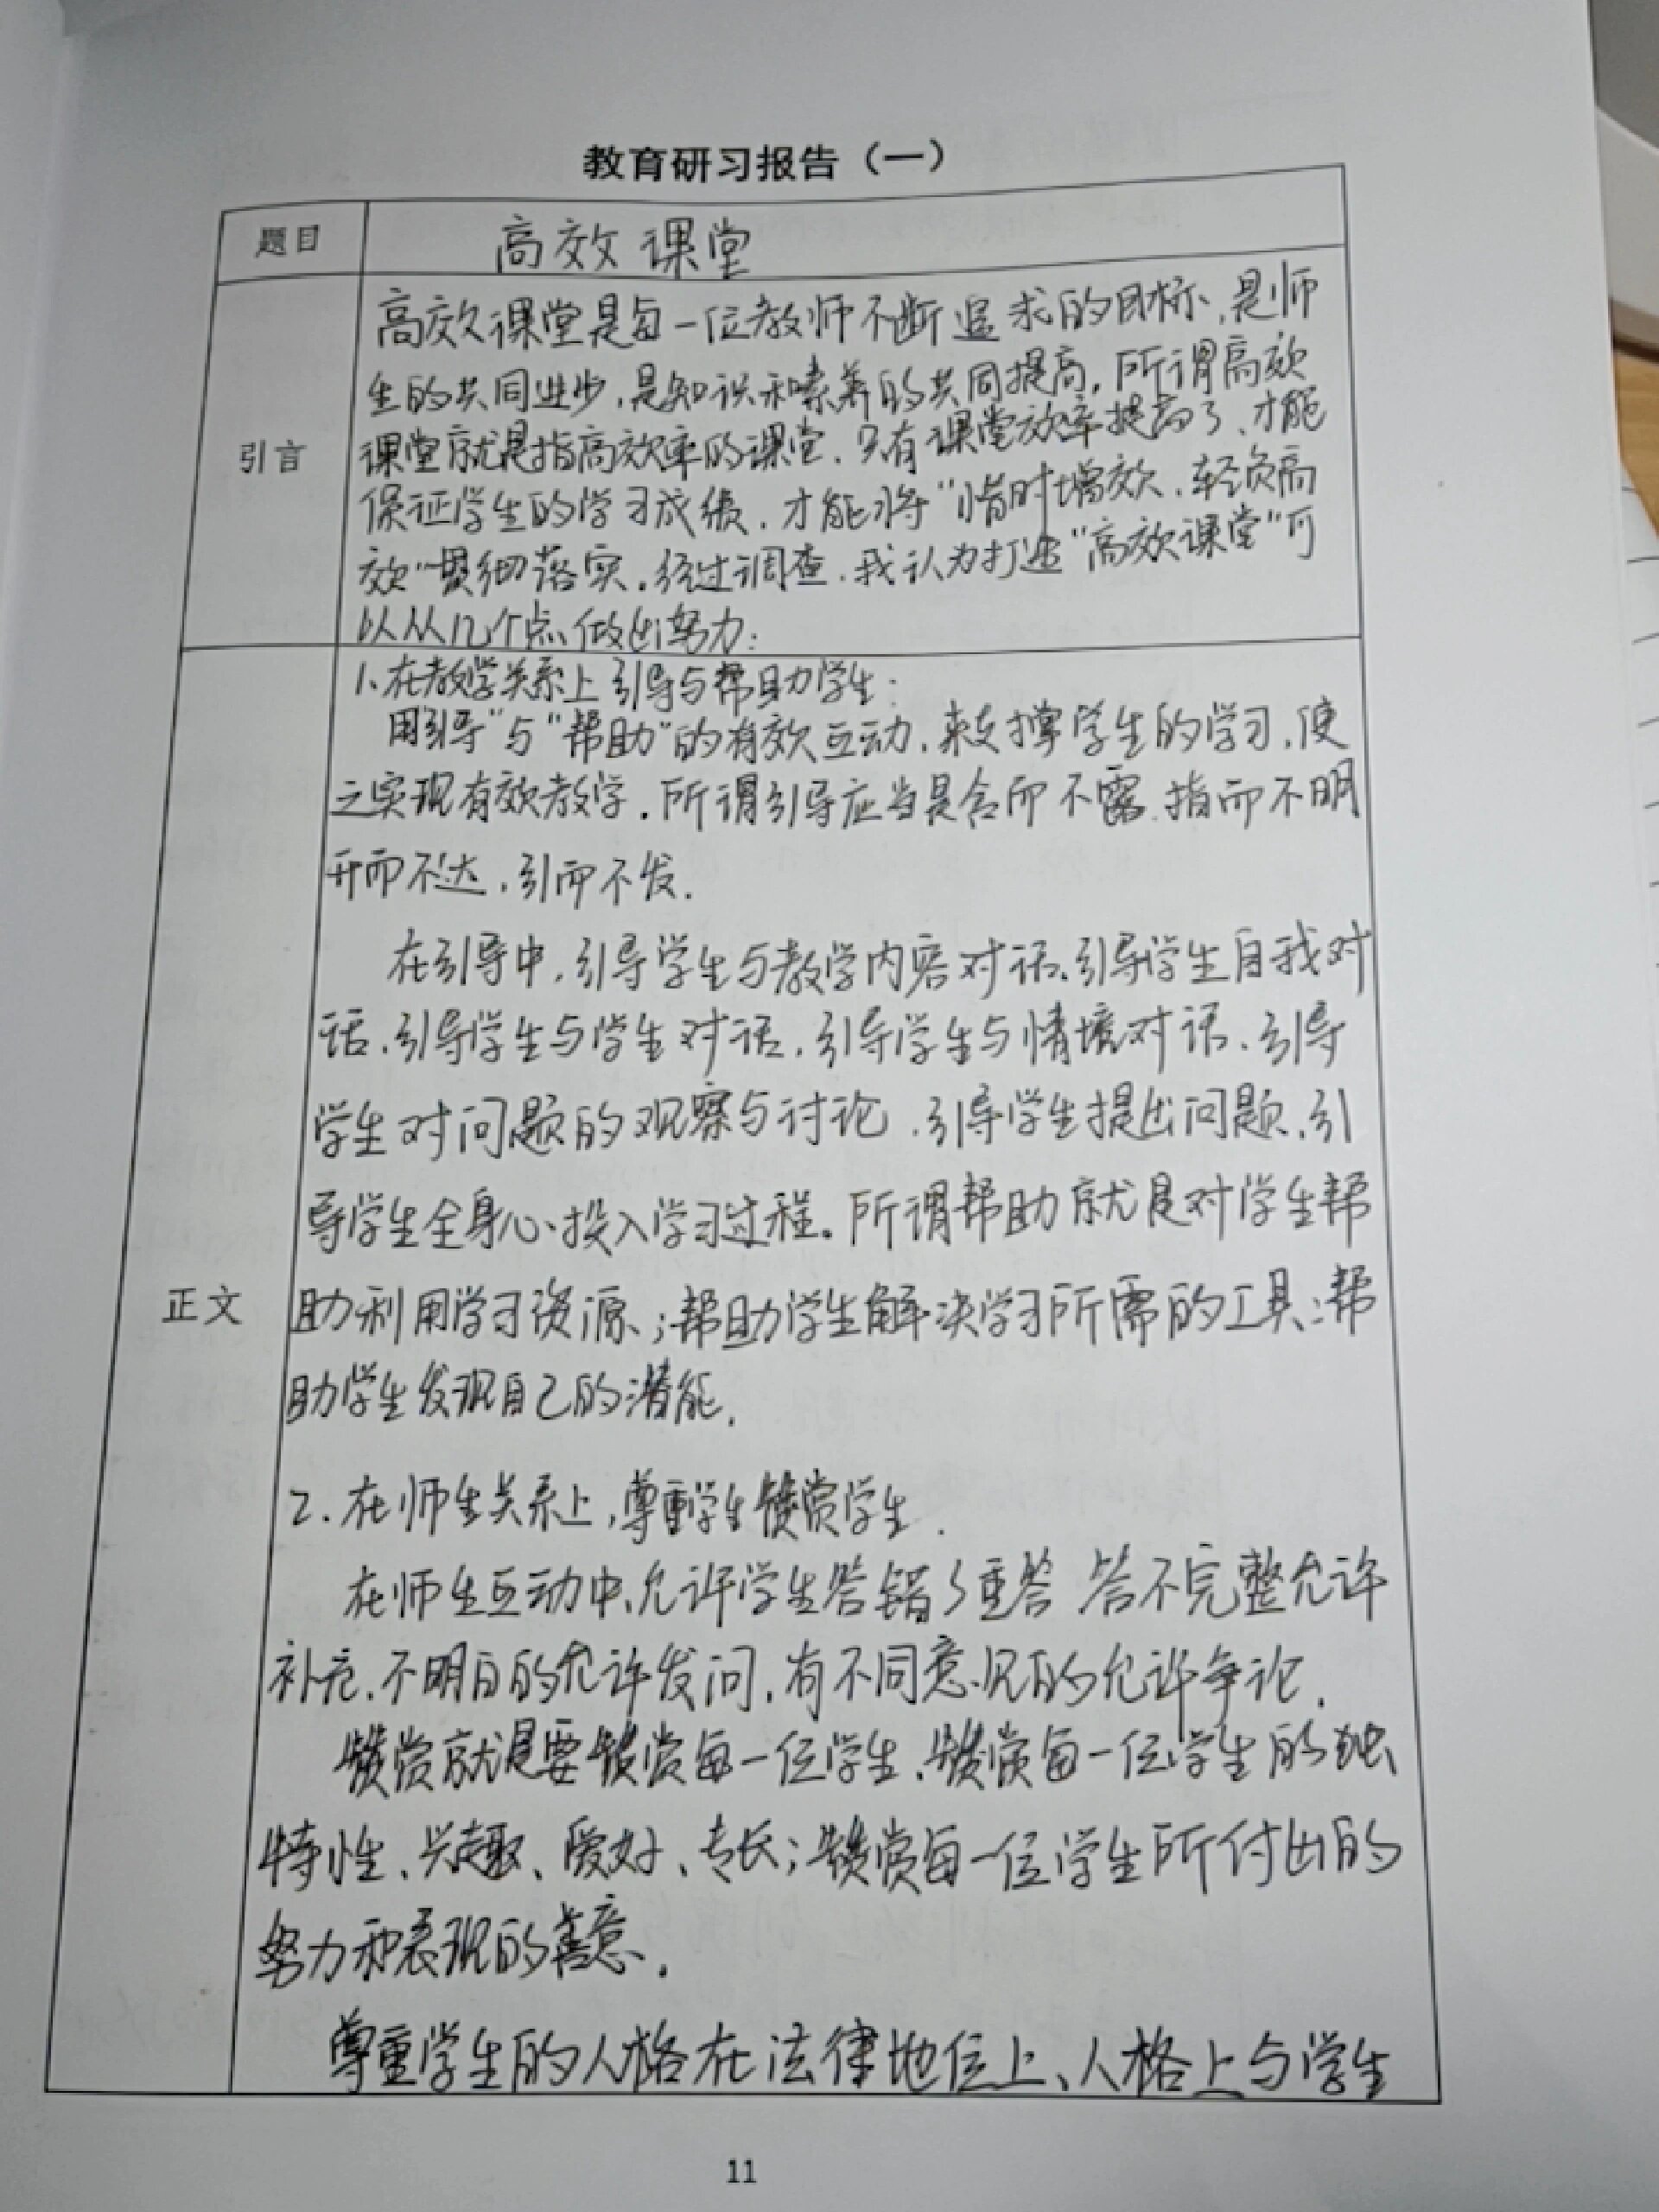 教育研习报告（一）
题目
高效课堂
引言
高效课堂是每一位教师不断追求的目标，是师
生的共同进步，是知识和素养的共同提高。所谓高效
课堂就是指高效率的课堂。只有课堂效率提高了，才能
保证学生的学习成绩，才能将"惜时增效，轻负高
效"贯彻落实。经过调查，我认为打造"高效课堂"可
以从几个点做出努力：
正文
1.在教学关系上引导与帮助学生：
用引导"与"帮助"的有效互动，来支撑学生的学习，使
之实现有效教学。所谓引导应当是含而不露，指而不明
开而不达，引而不发。
在引导中，引导学生与教学内容对话，引导学生自我对
话，引导学生与学生对话，引导学生与情境对话，引导
学生对问题的观察与讨论，引导学生提出问题，引
导学生全身心投入学习过程。所谓帮助就是对学生帮
助利用学习资源；帮助学生解决学习所需的工具；帮
助学生发现自己的潜能。
2.在师生关系上，尊重学生赞赏学生。
在师生互动中，允许学生答错了重答 答不完整允许
补充，不明白的允许发问，有不同意见的允许争论。
赞赏就是要赞赏每一位学生，赞赏每一位学生的独
特性、兴趣、爱好、专长；赞赏每一位学生所付出的
努力和表现的善意。
尊重学生的人格在法律地位上、人格上与学生
11